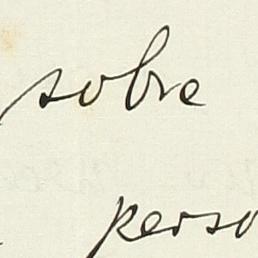 sobre
perso